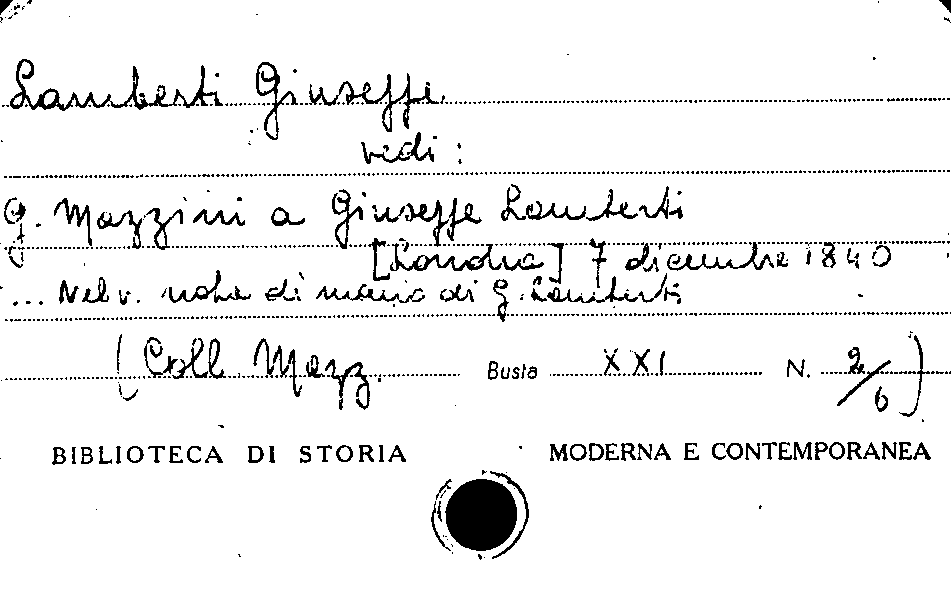 Lamberti Giuseppe
vedi :
G. Mazzini a Giuseppe Lamberti
[Londra] 7 dicembre 1840
... Nel v. nota di mano di G. Lamberti
(Coll. Mazz. Busta XXI N. 2/6)
BIBLIOTECA DI STORIA MODERNA E CONTEMPORANEA